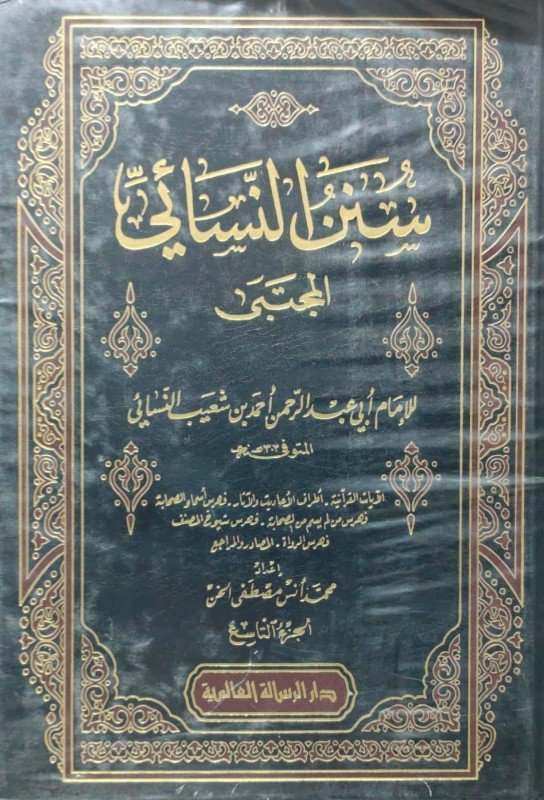 سُنَنُ النَّسَائِيِّ
المجتبى
للإمام أبي عبد الرحمن أحمد بن شعيب النسائي
المتوفى ٣٠٣ هـ
الآيات القرآنية - أطراف الأحاديث والآثار - فهرس أسماء الصحابة
فهرس من لم يسم من الصحابة - فهرس شيوخ المصنف
فهرس الرواة - المصادر والمراجع
إعداد
محمد أنس مصطفى الخن
الجزء التاسع
دار الرسالة العالمية